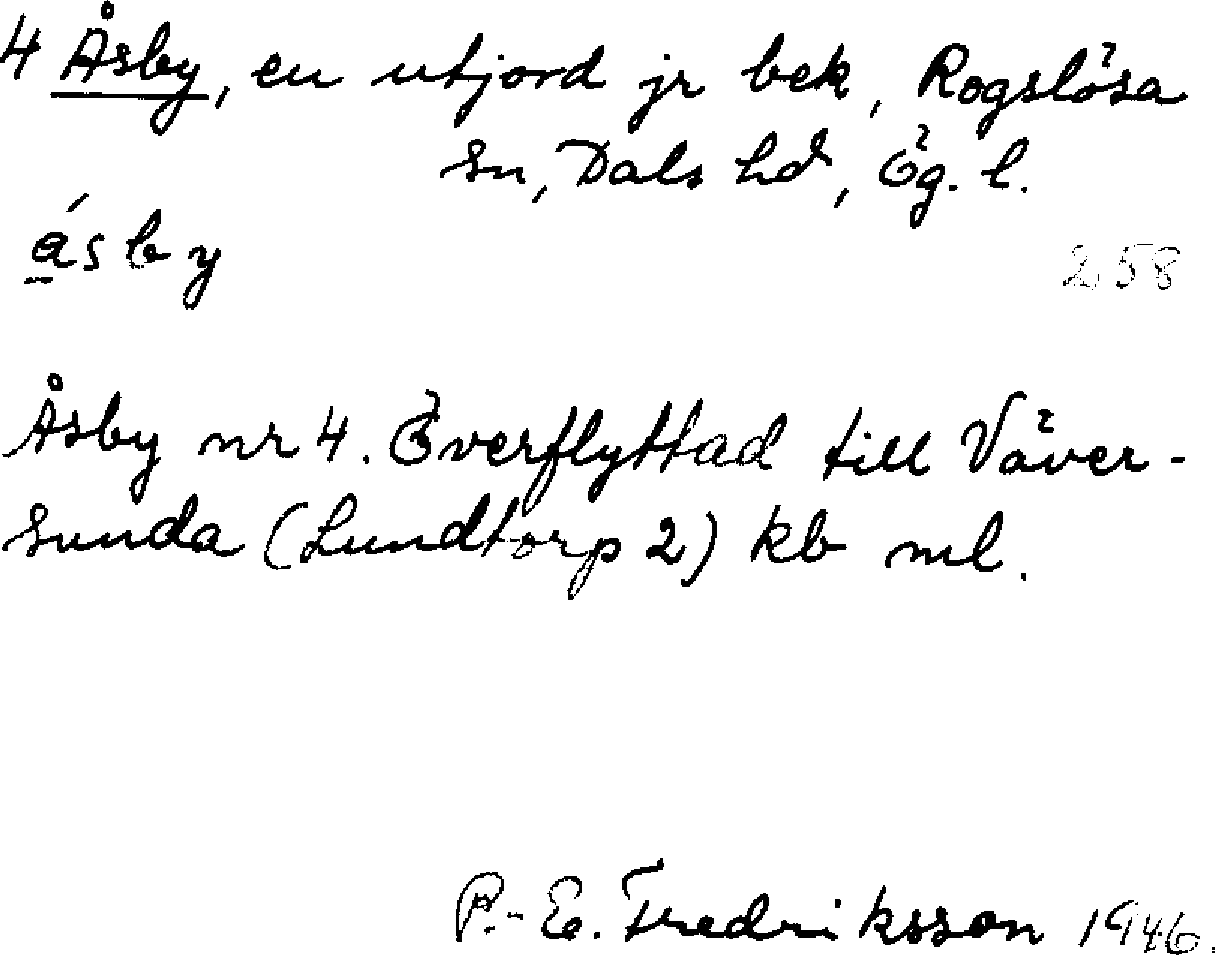 4 Åsby, en utjord jr bek, Rogslösa
sn, Dals hd, Ög. l.
ásby
258
Åsby nr 4. Överflyttad till Väver-
sunda (Lundtorp 2) kb ml.
P.-E. Fredriksson 1946.